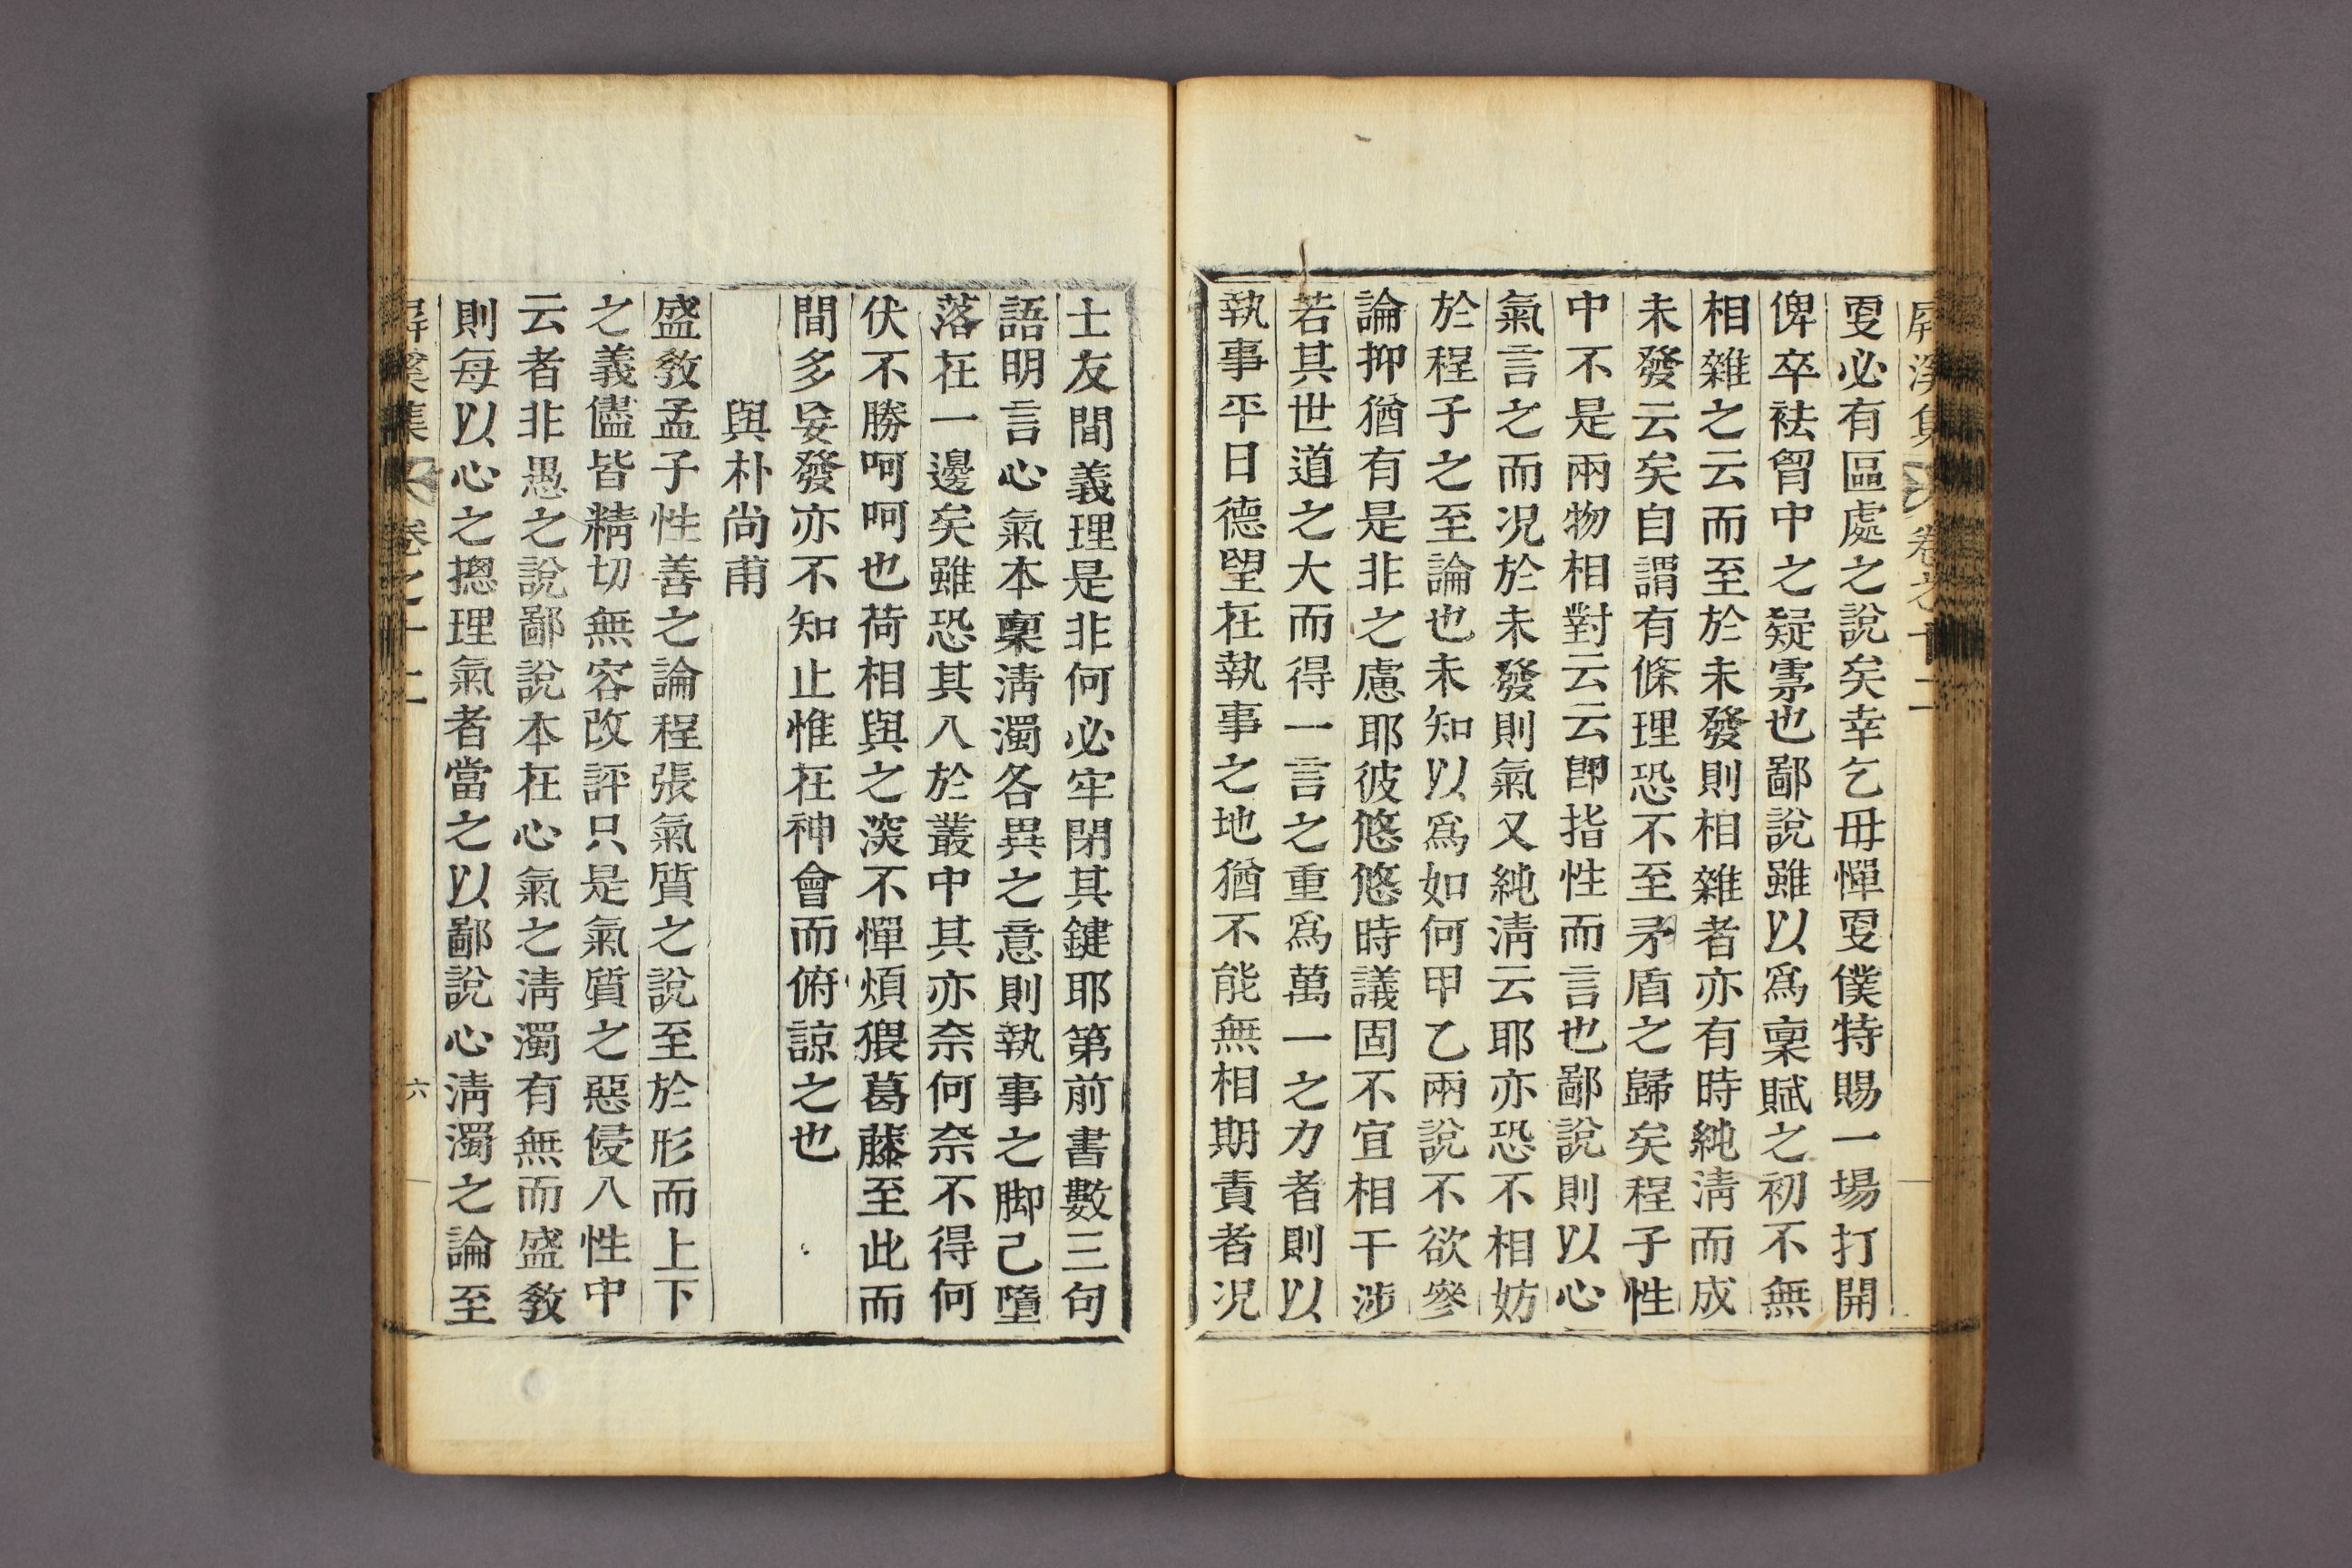 屛溪集 卷之十二
更必有區處之說矣幸乞毋憚更僕特賜一場打開
俾卒祛胷中之疑霁也鄙說雖以爲稟賦之初不無
相雜之云而至於未發則相雜者亦有時純淸而成
未發云矣自謂有條理恐不至矛盾之歸矣程子性
中不是兩物相對云云卽指性而言也鄙說則以心
氣言之而况於未發則氣又純淸云耶亦恐不相妨
於程子之至論也未知以爲如何甲乙兩說不欲參
論抑猶有是非之慮耶彼悠悠時議固不宜相干涉
若其世道之大而得一言之重爲萬一之力者則以
執事平日德望在執事之地猶不能無相期責者况
士友間義理是非何必牢閉其鍵耶第前書數三句
語明言心氣本稟淸濁各異之意則執事之脚己墮
落在一邊矣雖恐其入於叢中其亦奈何奈不得何
伏不勝呵呵也荷相與之深不憚煩猥葛藤至此而
間多妄發亦不知止惟在神會而俯諒之也
與朴尙甫
盛敎孟子性善之論程張氣質之說至於形而上下
之義儘皆精切無容改評只是氣質之惡侵入性中
云者非愚之說鄙說本在心氣之淸濁有無而盛敎
則每以心之摠理氣者當之以鄙說心淸濁之論至
屛溪集 卷之十二 六